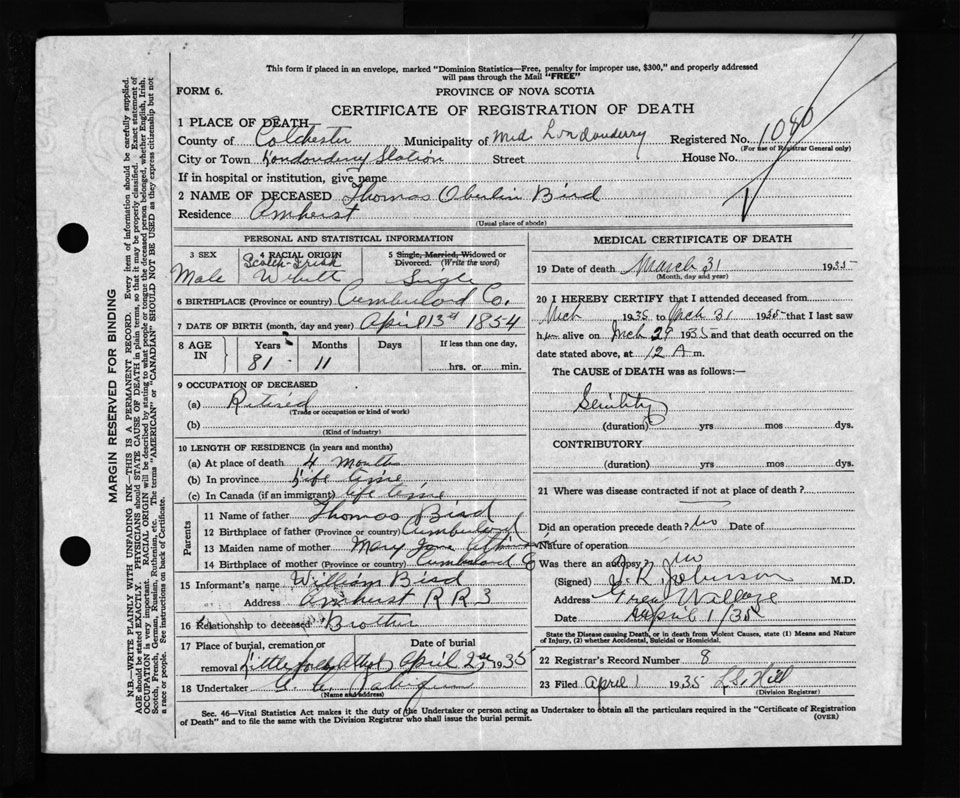 This form if placed in an envelope, marked "Dominion Statistics—Free, penalty for improper use, $300," and properly addressed
will pass through the Mail "FREE"
FORM 6. PROVINCE OF NOVA SCOTIA
CERTIFICATE OF REGISTRATION OF DEATH
1 PLACE OF DEATH
County of Colchester Municipality of Londonderry Registered No. 1080
(For use of Registrar General only)
City or Town Londonderry Station Street House No.
If in hospital or institution, give name
2 NAME OF DECEASED Thomas Oberlin Bird
Residence Amherst
(Usual place of abode)
PERSONAL AND STATISTICAL INFORMATION
3 SEX 4 RACIAL ORIGIN 5 Single, Married, Widowed or
Divorced. (Write the word)
Scotch-Irish
Male White Single
6 BIRTHPLACE (Province or country) Cumberland Co.
7 DATE OF BIRTH (month, day and year) April 13 1854
8 AGE IN Years Months Days If less than one day,
81 11 hrs. or min.
9 OCCUPATION OF DECEASED
(a) Retired
(Trade or occupation or kind of work)
(b)
(Kind of industry)
10 LENGTH OF RESIDENCE (in years and months)
(a) At place of death 4 months
(b) In province Life time
(c) In Canada (if an immigrant) life time
Parents
11 Name of father Thomas Bird
12 Birthplace of father (Province or country) Cumberland
13 Maiden name of mother Mary Jane
14 Birthplace of mother (Province or country) Cumberland Co
15 Informant's name William Bird
Address Amherst R R 3
16 Relationship to deceased Brother
17 Place of burial, cremation or Date of burial
removal Little April 2 1935
18 Undertaker
(Name and address)
MEDICAL CERTIFICATE OF DEATH
19 Date of death March 31 1935
(Month, day and year)
20 I HEREBY CERTIFY that I attended deceased from
Mch 1935 to Mch 31 1935 that I last saw
him alive on Mch 29 1935 and that death occurred on the
date stated above, at 12 A m.
The CAUSE of DEATH was as follows:—
Senility
(duration) yrs mos dys.
CONTRIBUTORY
(duration) yrs. mos. dys.
21 Where was disease contracted if not at place of death?
Did an operation precede death? no Date of
Nature of operation
Was there an autopsy? no
(Signed) Johnson M.D.
Address Great Village
Date April 1/35
State the Disease causing Death, or in death from Violent Causes, state (1) Means and Nature
of Injury, (2) whether Accidental, Suicidal or Homicidal.
22 Registrar's Record Number 8
23 Filed April 1 1935 Hill
(Division Registrar)
Sec. 46—Vital Statistics Act makes it the duty of the Undertaker or person acting as Undertaker to obtain all the particulars required in the "Certificate of Registration
of Death" and to file the same with the Division Registrar who shall issue the burial permit. (OVER)
MARGIN RESERVED FOR BINDING
N.B.—WRITE PLAINLY WITH UNFADING INK—THIS IS A PERMANENT RECORD. Every item of information should be carefully supplied.
AGE should be stated EXACTLY. PHYSICIANS should STATE CAUSE OF DEATH in plain terms, so that it may be properly classified. Exact statement of
OCCUPATION is very important. RACIAL ORIGIN will be described by stating to what people or tongue the deceased person belonged, whether English, Irish,
Scotch, French, German, Russian, Ruthenian, etc. The terms "AMERICAN" or "CANADIAN" SHOULD NOT BE USED as they express citizenship but not
a race or people. See instructions on back of Certificate.